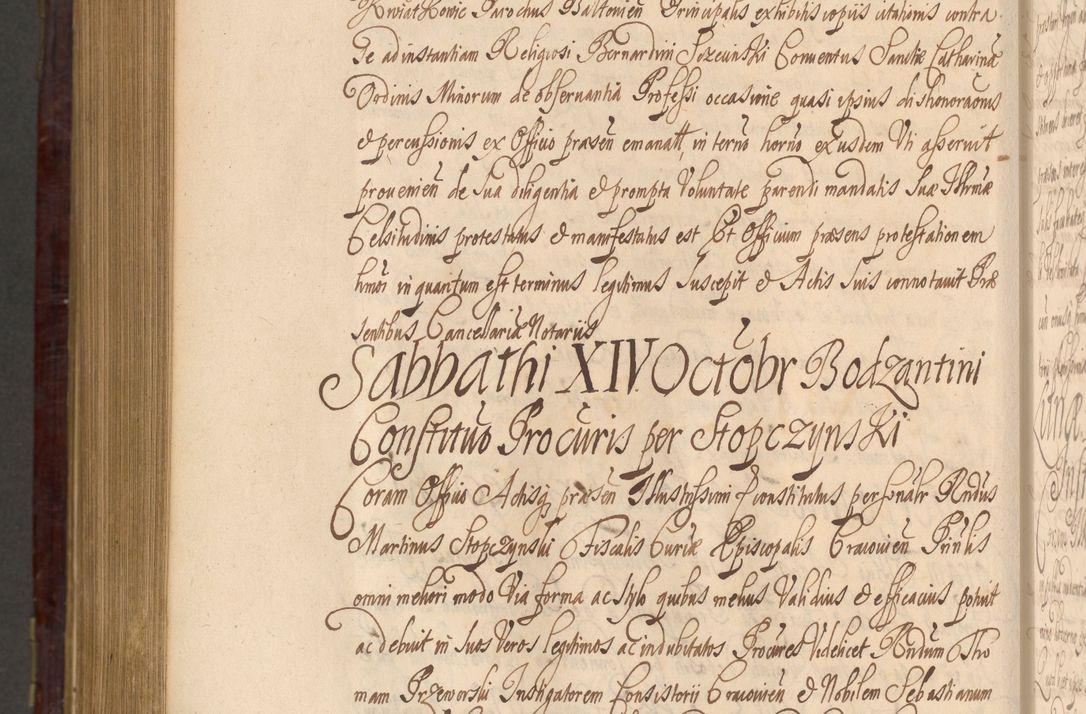 KwiatKowic Parochus Baltonien Principalis exhibitis copiis citationis contra
Se ad instantiam Religiosi Bernardini Conventus Sanctæ Catharinæ
Ordinis Minorum de observantia Professi occasione quasi ipsius dishonoraonis
et percussionis ex Officio præsen emanatt, in terno horno ejusdem Uti asseruit
provenien de Sua diligentia et prompta Voluntate parendi mandatis Suæ Illrmæ
Celsitudinis protestatus et manifestatus est Et Officium præsens protestationem
hmoi in quantum est terminus legitimus Suscepit et Actis Suis connotavit Præ
sentibus Cancellariæ Notariis
Sabbathi XIV Octobr Bodzantini
Constituo Procuris per StopczynsKi
Coram Offio Actisq præsen Illustrissimi constitutus personalr Rndus
Martinus Stopczynski Fiscalis Curiæ Episcopalis Cracovien Prinlis
omni meliori modo Via forma ac stylo quibus melius Validius et efficacius potuit
ac debuit in Suos Veros legitimos ac indubitatos Procures Videlicet Rndum Tho
mam Przeworski Instigatorem Consistorii Cracovien et Nobilem Sebastianum